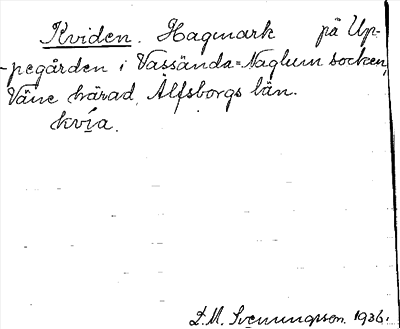 Kviden. Hagmark på Up-
pegården i Vassända=Naglum socken,
Väne härad, Älfsborgs län.
kvía.
D. M. Svenungsson. 1936.